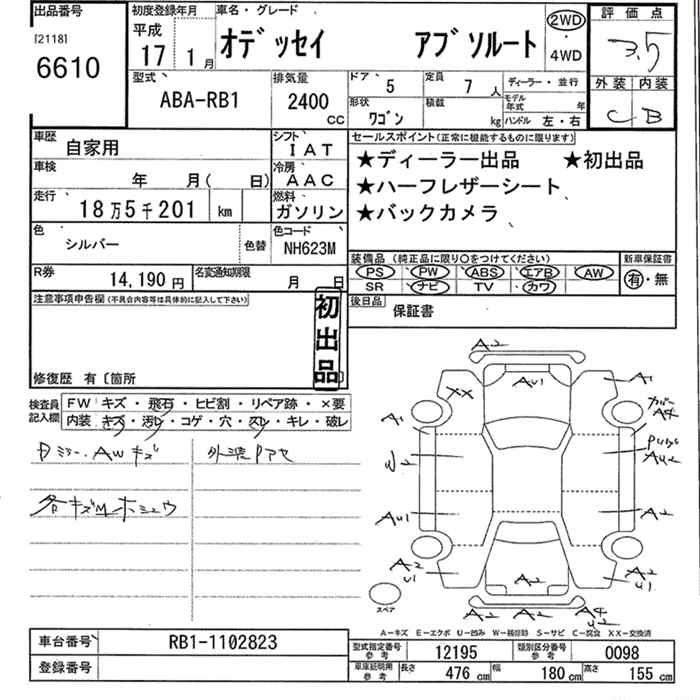 出品番号 初度登録年月 車名・グレード 評価点
[2118] 平成 オデッセイ アブソルート 2WD 3.5
6610 17 1月 ・4WD
外装 内装
C B
型式 排気量 ドア 5 定員 7人 ディーラー・並行
ABA-RB1 2400 CC 形状 ワゴン 積載 kg モデル年式 年
ハンドル 左・右
車歴 自家用 シフト IAT セールスポイント(正常に機能するものに限ります)
車検 年 月( 日) 冷房 AAC ★ディーラー出品 ★初出品
走行 18万5千201 km 燃料 ガソリン ★ハーフレザーシート
★バックカメラ
色 シルバー 色替 色コード NH623M
装備品(純正品に限り〇をつけてください) 新車保証書
PS PW ABS エアB AW 有・無
SR ナビ TV カワ
R券 14,190円 名変通知期限 月 日
後日品 保証書
注意事項申告欄(不具合内容等は具体的に記入して下さい)
初出品
修復歴 有〔箇所 〕
検査員記入欄 FW キズ・飛石・ヒビ割・リペア跡・×要
内装 キズ・汚レ・コゲ・穴・スレ・キレ・破レ
AWキズ 外装
各キズMホシュウ
A2
XX AU1 A1
A1 カバー A4
U2 AU2
AU1 A2
A2 U1 A2 A2 U1
スペア A2 A2 A4 U2
A-キズ E-エクボ U-凹み W-補修跡 S-サビ C-腐食 XX-交換済
車台番号 RB1-1102823
登録番号
型式指定番号 参考 12195 類別区分番号 参考 0098
車庫証明用 参考 長さ 476cm 幅 180cm 高さ 155cm